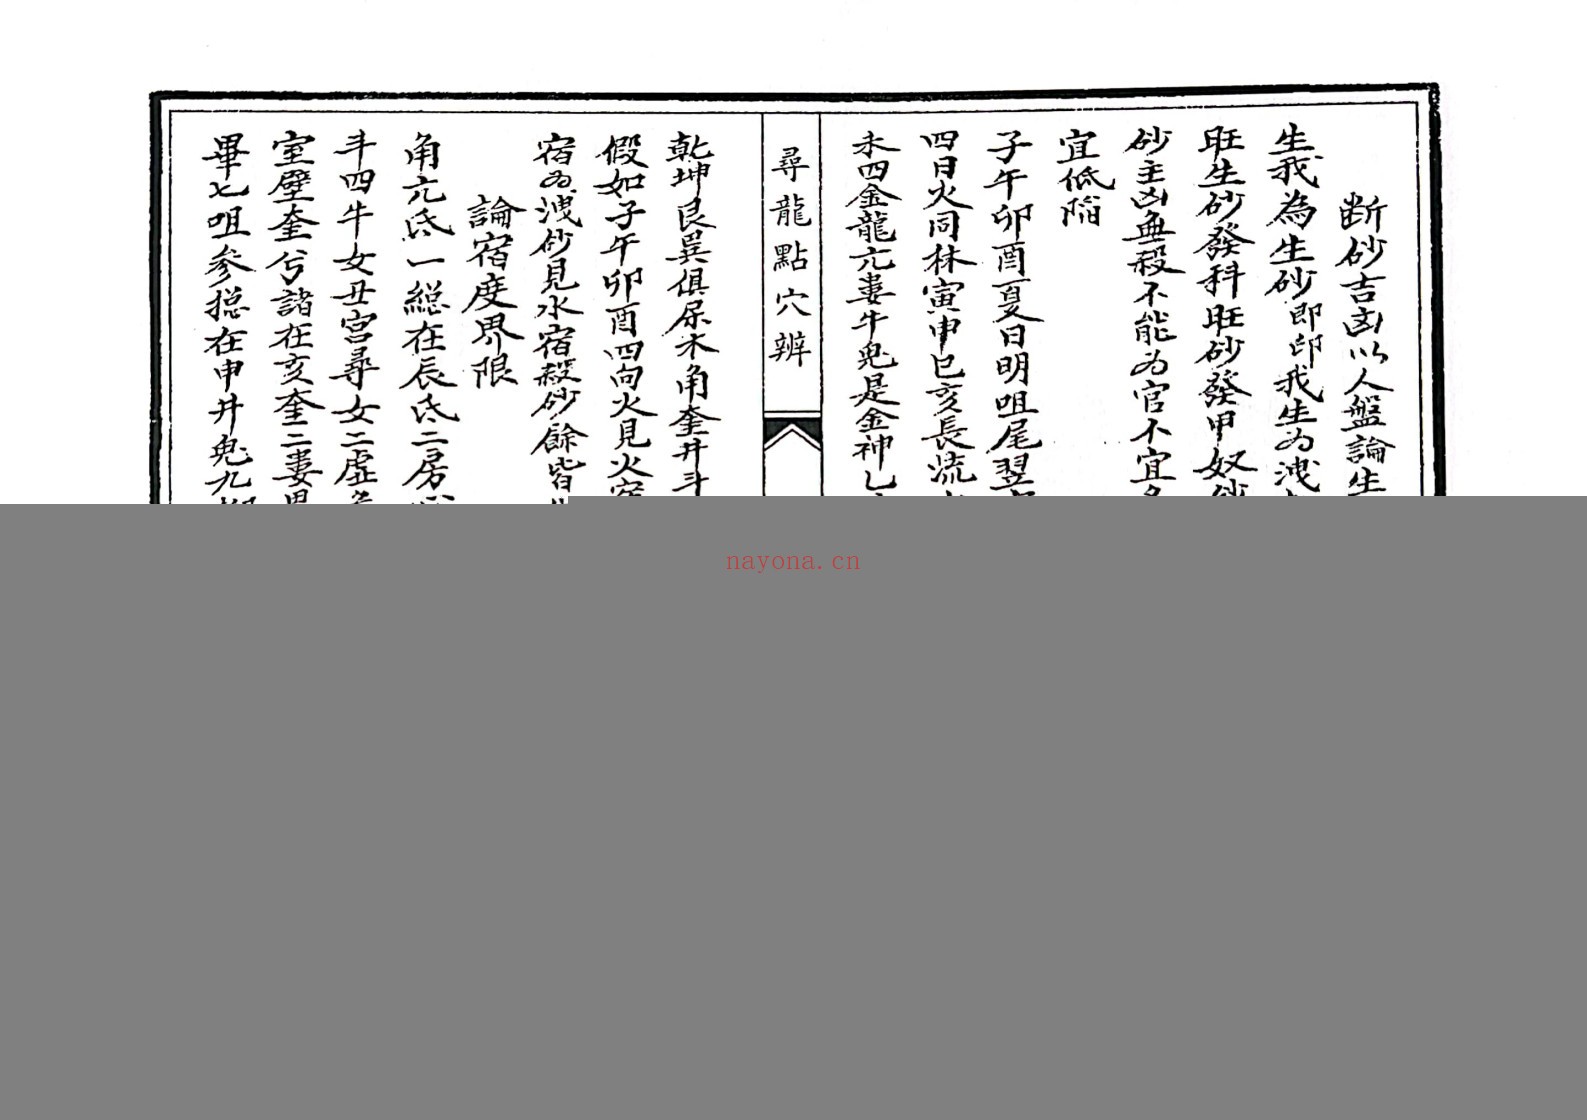 断砂吉凶以人盤論生
生我為生砂即印我生为洩
旺生砂發科旺砂發甲奴砂
砂主凶無殺不能为官不宜
宜低陷
子午卯酉夏日明咀尾翌
四日火同林寅申巳亥長流
未四金龍亢婁牛鬼是金神乙
尋龍點穴辨
乾坤艮巽俱屬木角奎井斗
假如子午卯酉四向火見火宿
宿为洩砂見水宿殺砂餘皆
論宿度界限
角亢氐一縂在辰氐二房
斗四牛女丑宮尋女二虛
室壁奎兮諸在亥奎二婁
畢七咀参摠在申井鬼九
nayona.cn